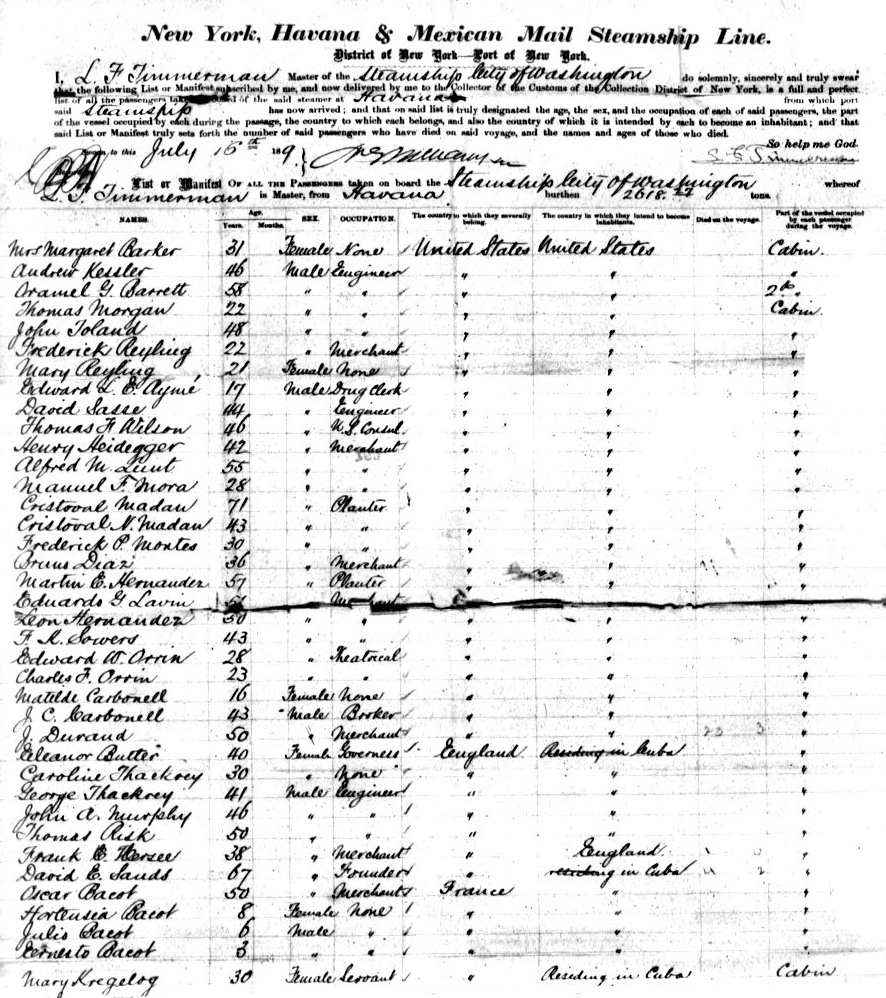 New York, Havana & Mexican Mail Steamship Line.
District of New York—Port of New York.
I, L. F. Timmerman Master of the Steamship City of Washington do solemnly, sincerely and truly swear
that the following List or Manifest subscribed by me, and now delivered by me to the Collector of the Customs of the Collection District of New York, is a full and perfect
list of all the passengers taken on board of the said steamer at Havana from which port
said Steamship has now arrived; and that on said list is truly designated the age, the sex, and the occupation of each of said passengers, the part
of the vessel occupied by each during the passage, the country to which each belongs, and also the country of which it is intended by each to become an inhabitant; and that
said List or Manifest truly sets forth the number of said passengers who have died on said voyage, and the names and ages of those who died.
So help me God.
to this July 16th 189 L. F. Timmerman
List or Manifest OF ALL THE PASSENGERS taken on board the Steamship City of Washington whereof
L. F. Timmerman is Master, from Havana burthen 2618 tons.
NAMES. Age. Years. Months. SEX. OCCUPATION. The country to which they severally belong. The country in which they intend to become inhabitants. Died on the voyage. Part of the vessel occupied by each passenger during the voyage.
Mrs Margaret Barker 31 Female None United States United States Cabin.
Andrew Kessler 46 Male Engineer " " "
Aramel G. Barrett 58 " " " " 2d "
Thomas Morgan 22 " " " " Cabin.
John Toland 48 " " " " "
Frederick Reyling 22 " Merchant " " "
Mary Reyling 21 Female None " " "
Edward L. E. Aymé 17 Male Drug Clerk " " "
David Sasse 44 " Engineer " " "
Thomas F. Wilson 46 " U.S. Consul " " "
Henry Heidegger 42 " Merchant " " "
Alfred M. Lunt 55 " " " " "
Manuel F. Mora 28 " " " " "
Cristoval Madan 71 " Planter " " "
Cristoval N. Madan 43 " " " " "
Frederick P. Montes 30 " " " " "
Diaz 36 " Merchant " " "
Martin E. Hernandez 57 " Planter " " "
Eduardo G. Lavin 51 " Merchant " " "
Leon Hernandez 50 " " " " "
F. A. Sowers 43 " " " " "
Edward W. Orrin 28 " Theatrical " " "
Charles F. Orrin 23 " " " " "
Matilde Carbonell 16 Female None " " "
J. C. Carbonell 43 Male Broker " " "
J. Durand 50 " Merchant " " "
Eleanor Butter 40 Female Governess England Residing in Cuba "
Caroline Thackrey 30 " None " " "
George Thackrey 41 Male Engineer " " "
John A. Murphy 46 " " " " "
Thomas Risk 50 " " " " "
Frank E. Hersee 38 " Merchant " England "
David E. Sands 67 " Founder " residing in Cuba "
Oscar Bacot 50 " Merchant France " "
Hortensia Bacot 8 Female None " " "
Julio Bacot 6 Male " " " "
Ernesto Bacot 3 " " " " "
Mary Kregelog 30 Female Servant " Residing in Cuba Cabin